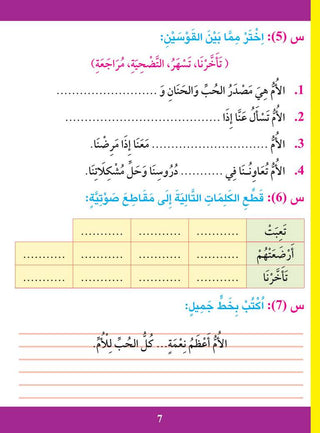 س (5): اِخْتَرْ مِمَّا بَيْنَ القَوْسَيْنِ:
( تَأَخَّرْنَا، تَسْهَرُ، التَّضْحِيَةِ، مُرَاجَعَةِ)
1. الأُمُّ هِيَ مَصْدَرُ الحُبِّ وَالحَنَانِ وَ ..........................
2. الأُمُّ تَسْأَلُ عَنَّا إِذَا ........................................
3. الأُمُّ .............................. مَعَنَا إِذَا مَرِضْنَا.
4. الأُمُّ تُعَاوِنُنَا فِي ........... دُرُوسِنَا وَحَلِّ مُشْكِلَاتِنَا.
س (6): قَطِّعِ الكَلِمَاتِ التَّالِيَةَ إِلَى مَقَاطِعَ صَوْتِيَّةٍ:
تَعِبَتْ ........... ........... ...........
أَرْضَعَتْهُمْ ........... ........... ........... ...........
تَأَخَّرْنَا ........... ........... ........... ...........
س (7): اُكْتُبْ بِخَطٍّ جَمِيلٍ:
الأُمُّ أَعْظَمُ نِعْمَةٍ... كُلُّ الحُبِّ لِلْأُمِّ.
7